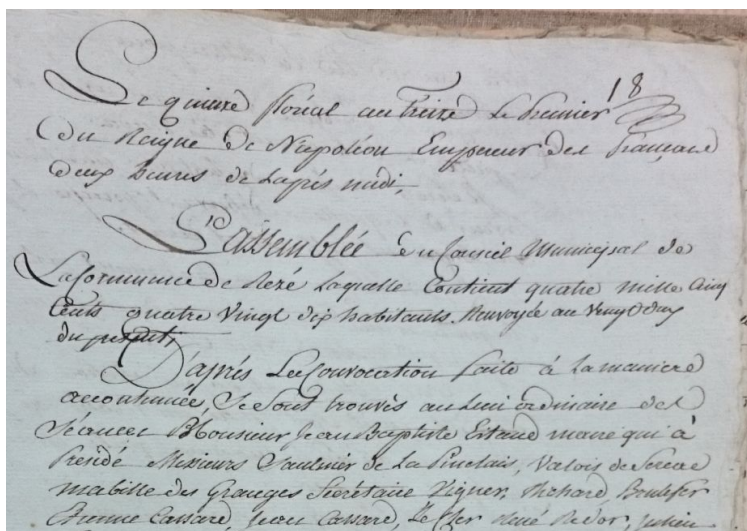 18
Le quinze floréal an treize Le Premier
Du Reigne de Napoléon Empereur des français
deux heures de Laprés midi,
L'assemblée du Conseil Municipal de
La Commune de Rezé Laquelle Contient quatre mille Cinq
Cents quatre Vingt dix habitants. Renvoyée au Vingt deux
du présent;
D'aprés La Convocation faite à La maniere
accoutumée, Se Sont trouvés au Lieu ordinaire des
Séances Monsieur Jean Baptiste Ertaud maire qui à
Présidé Messieurs Saulnier de La Pinelais, Valois de
mabille des Granges Secrétaire Viguer, Richard, Boulefer
Etienne Cassard, Jean Cassard, René julien